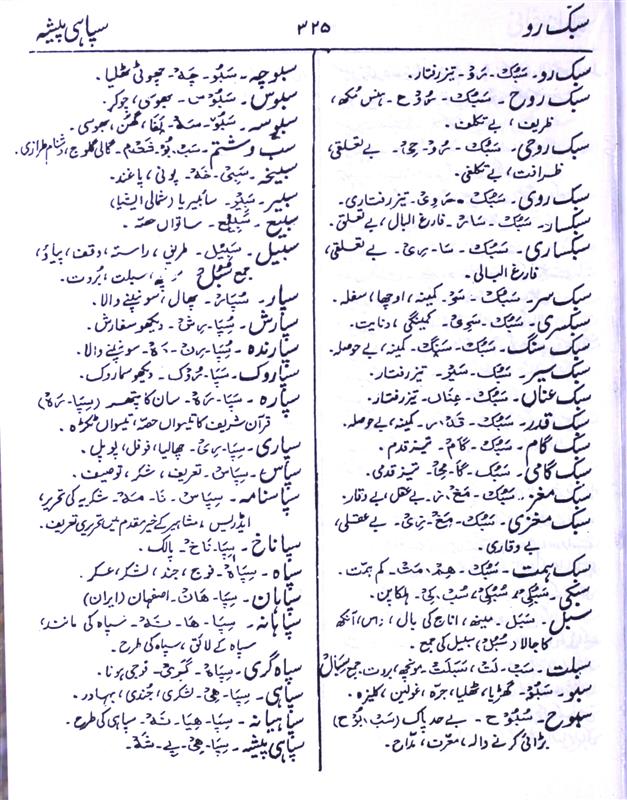 سبک رو ۳۲۵ سپاہی پیشہ
سبک رو۔ سَبُک۔ رَو۔ تیز رفتار۔
سبک روح۔ سَبُک۔ رُوح۔ ہنس مکھ،
ظریف، بے تکلف۔
سبک روحی۔ سَبُک۔ رُو۔ حِی۔ بے تعلقی،
ظرافت، بے تکلفی۔
سبک روی۔ سَبُک۔ رَوِی۔ تیز رفتاری۔
سبکسار۔ سَبُک۔ سَار۔ فارغ البال، بے تعلق۔
سبکساری۔ سَبُک۔ سَا۔ رِی۔ بے تعلقی،
فارغ البالی۔
سبک سر۔ سَبُک۔ سَر۔ کمینہ، اوچھا، سفلہ۔
سبکسری۔ سَبُک۔ سَرِی۔ کمینگی، دنایت۔
سبک سنگ۔ سَبُک۔ سَنگ۔ کمینہ، بے حوصلہ۔
سبک سیر۔ سَبُک۔ سَیر۔ تیز رفتار۔
سبک عناں۔ سَبُک۔ عِنَاں۔ تیز رفتار۔
سبک قدر۔ سَبُک۔ قَدر۔ کمینہ، بے حوصلہ۔
سبک گام۔ سَبُک۔ گَام۔ تیز قدم۔
سبک گامی۔ سَبُک۔ گَا۔ مِی۔ تیز قدمی۔
سبک مغز۔ سَبُک۔ مَغ۔ ز۔ بے عقل، بے وقار۔
سبک مغزی۔ سَبُک۔ مَغ۔ زِی۔ بے عقلی،
بے وقاری۔
سبک ہمت۔ سَبُک۔ ہِم۔ مَت۔ کم ہمت۔
سبکی۔ سَبُکِی، سُبُکِی، سُب۔ کِی۔ ہلکا پن۔
سبل۔ سَبَل۔ مینھ، اناج کی بال، آنکھ
کا جالا (سُبُل) سبیل کی جمع۔
سبلت۔ سَب۔ لَت، سَبَلَت۔ مونچھ، بروت۔ جمع سِبَال
سبو۔ سَبُو۔ گھڑیا، ٹھلیا، جرّہ،
سبوح۔ سُبُوح۔ بے حد پاک (سَب، بُوح)
بڑائی کرنے والا، مدّاح۔
سبوچہ۔ سَبُو۔ چَہ۔ چھوٹی ٹھلیا۔
سبوس۔ سَبُوس۔ بھوسی، چوکر۔
سبوسہ۔ سَبُو۔ سَہ۔ بفا، گھن، بھوسی۔
سب و شتم۔ سَب۔ بُو۔ شَتم۔ گالی گلوج، دشنام طرازی۔
سبیخہ۔ سَبِی۔ خَہ۔ پونی، پاغند۔
سبیر۔ سَبِیر۔ سائبیریا (شمالی ایشیا)
سبیع۔ سَبِیع۔ ساتواں حصہ۔
سبیل۔ سَبِیل۔ طریق، راستہ، وقف، پیاؤ،
جمع سُبُل سبلت، بُروت۔
سپار۔ سُپَار۔ پھال، سونپنے والا۔
سپارش۔ سُپَا۔ رِش۔ دیکھو سفارش۔
سپارندہ۔ سُپَا۔ رِن۔ دَہ۔ سونپنے والا۔
سپاروک۔ سَپَا۔ رُوک۔ دیکھو سماروک۔
سپارہ۔ سَپَا۔ رَہ۔ سان کا پتھر (سِپَا۔ رَہ)
قرآن شریف کا تیسواں حصہ، تیسواں ٹکڑہ۔
سپاری۔ سِپَا۔ رِی۔ چھالیا، فوفل، پوپل۔
سپاس۔ سِپَاس۔ تعریف، شکر، توصیف۔
سپاسنامہ۔ سِپَاس۔ نَا۔ مَہ۔ شکریہ کی تحریر،
ایڈریس، مشاہیر کے خیر مقدم میں تحریری تعریف۔
سپاناخ۔ سِپَا۔ نَاخ۔ پالک۔
سپاہ۔ سِپَاہ۔ فوج، جند، لشکر، عسکر۔
سپاہان۔ سِپَا۔ ہَان۔ اصفہان (ایران)
سپاہانہ۔ سِپَا۔ ہَا۔ نَہ۔ سپاہ کی مانند،
سپاہ کے لائق، سپاہ کی طرح۔
سپاہ گری۔ سِپَاہ۔ گَرِی۔ فوجی ہونا۔
سپاہی۔ سِپَا۔ ہِی۔ لشکری، جُندی، بہادر۔
سپاہیانہ۔ سِپَا۔ ہِیَا۔ نَہ۔ سپاہی کی طرح۔
سپاہی پیشہ۔ سِپَا۔ ہِی۔ پے۔ شَہ۔